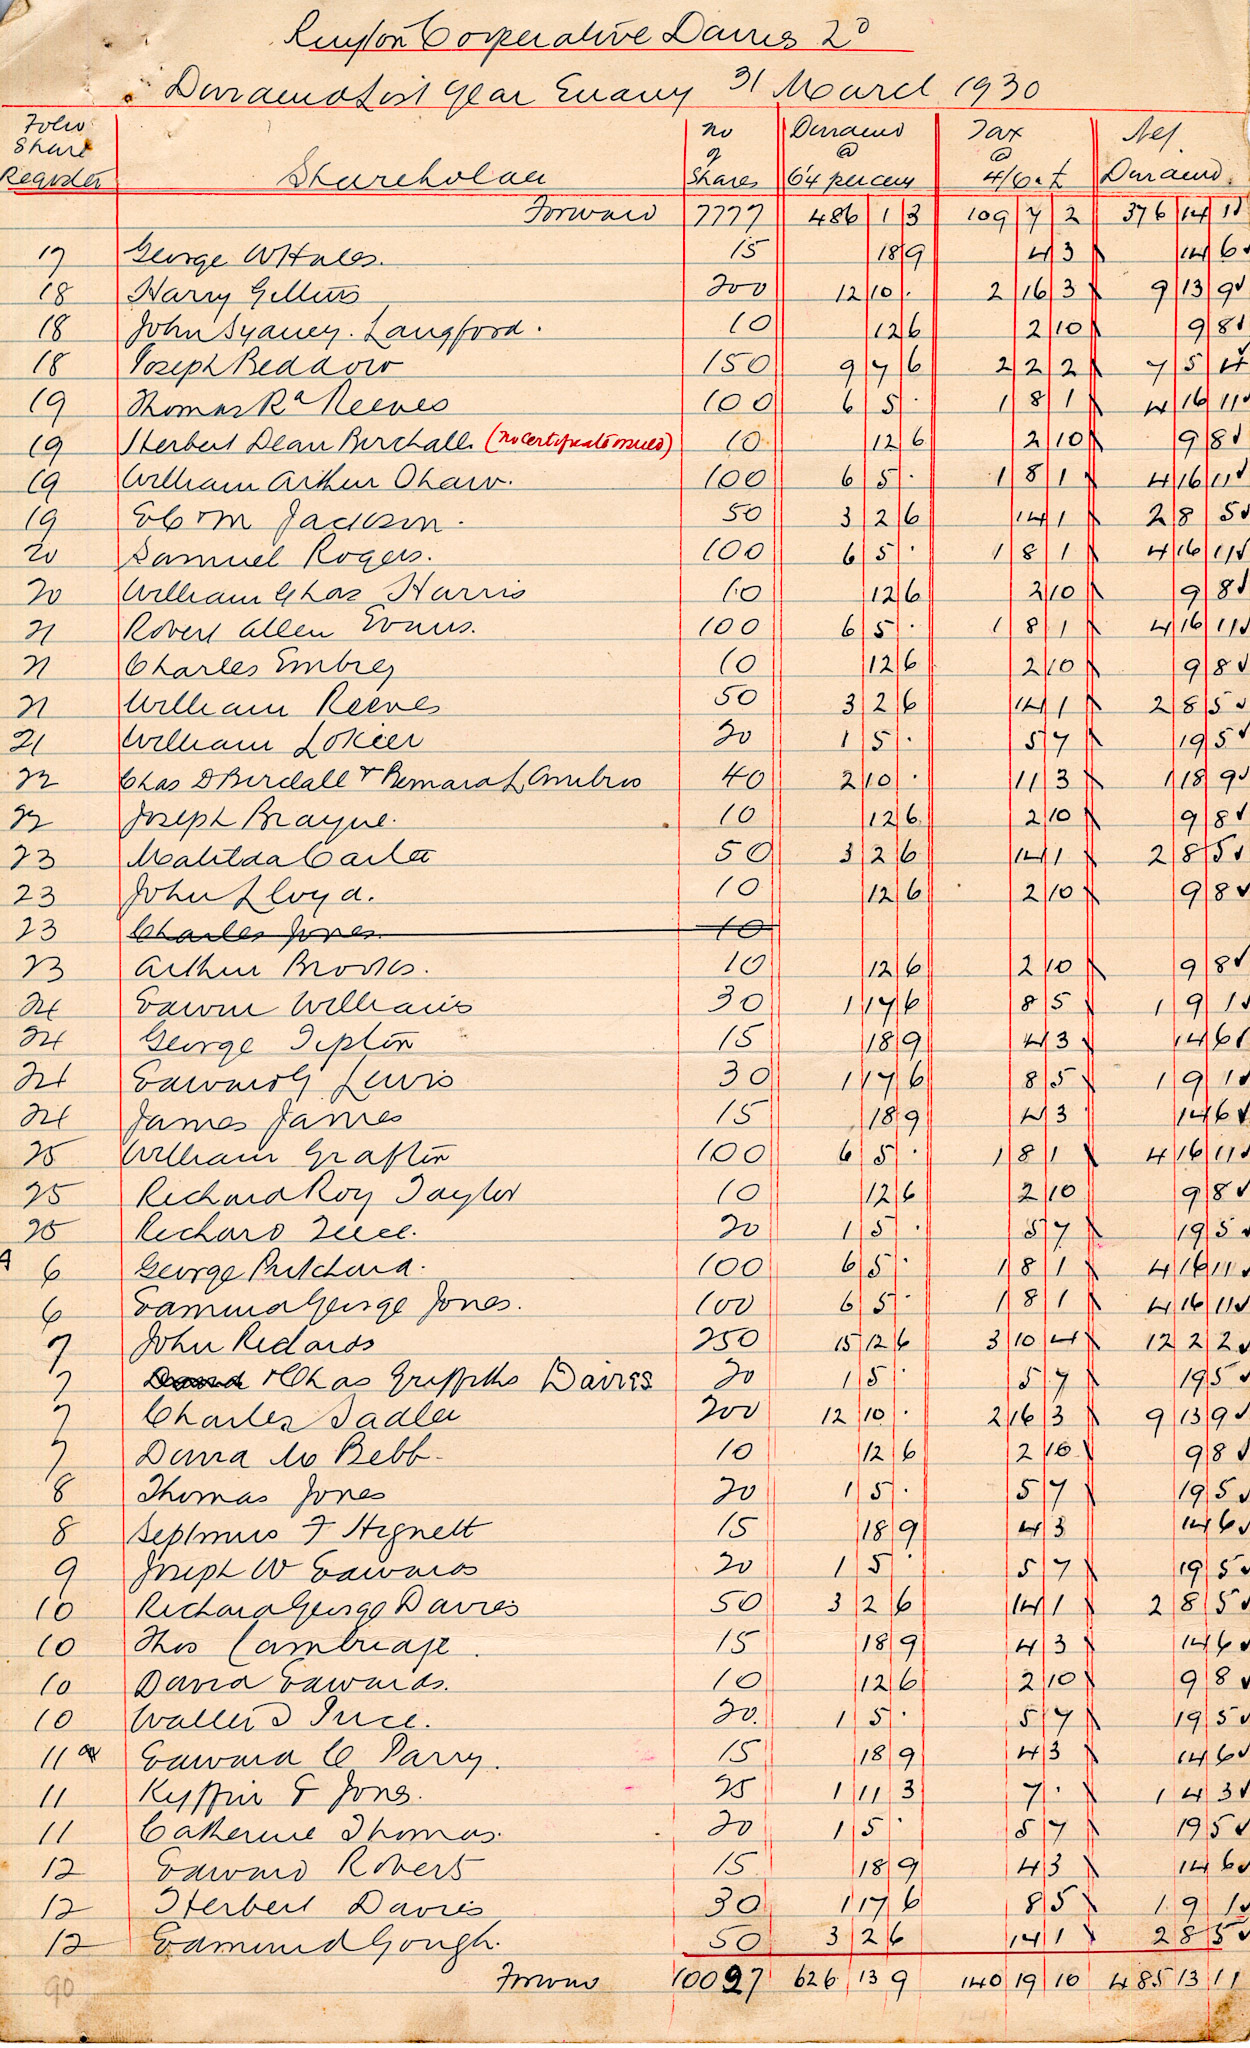 Ruyton Cooperative Dairies Ld
Dividend List Year Ending 31 March 1930
Folio Share Register Shareholder no of Shares Dividend @ 6¼ per cent Tax @ 4/6 in £ Net Dividend
Forward 7777 486 1 3 109 7 2 376 14 1
17 George W Hales. 15 18 9 4 3 14 6
18 Harry Gittins 200 12 10 . 2 16 3 9 13 9
18 John Sydney. Langford. 10 12 6 2 10 9 8
18 Joseph Beddow 150 9 7 6 2 2 2 7 5 4
19 Thomas Rd Reeves 100 6 5 . 1 8 1 4 16 11
19 Herbert Dean Birchall (no certificate issued) 10 12 6 2 10 9 8
19 William Arthur Shaw. 100 6 5 . 1 8 1 4 16 11
19 Jackson. 50 3 2 6 14 1 2 8 5
20 Samuel Rogers. 100 6 5 . 1 8 1 4 16 11
20 William Chas Harris 10 12 6 2 10 9 8
21 Robert Allen Evans. 100 6 5 . 1 8 1 4 16 11
21 Charles Embrey 10 12 6 2 10 9 8
21 William Reeves 50 3 2 6 14 1 2 8 5
21 William Lokier 20 1 5 . 5 7 19 5
22 Chas D Birchall & Bernard L 40 2 10 . 11 3 1 18 9
22 Joseph Brayne. 10 12 6 2 10 9 8
23 Matilda Carter 50 3 2 6 14 1 2 8 5
23 John Lloyd. 10 12 6 2 10 9 8
23 Charles Jones 10
23 Arthur Brookes. 10 12 6 2 10 9 8
24 Edwin Williams 30 1 17 6 8 5 1 9 1
24 George Tipton 15 18 9 4 3 14 6
24 Edward G Lewis 30 1 17 6 8 5 1 9 1
24 James James 15 18 9 4 3 14 6
25 William Grafton 100 6 5 . 1 8 1 4 16 11
25 Richard Roy Taylor 10 12 6 2 10 9 8
25 Richard Price. 20 1 5 . 5 7 19 5
A 6 George Pritchard. 100 6 5 . 1 8 1 4 16 11
6 Edmund George Jones. 100 6 5 . 1 8 1 4 16 11
7 John Richards 250 15 12 6 3 10 4 12 2 2
7 David & Chas Griffiths Davies 20 1 5 . 5 7 19 5
7 Charles Sadler 200 12 10 . 2 16 3 9 13 9
7 David M Bebb. 10 12 6 2 10 9 8
8 Thomas Jones 20 1 5 . 5 7 19 5
8 Septimus F Hignett 15 18 9 4 3 14 6
9 Joseph W Edwards 20 1 5 . 5 7 19 5
10 Richard George Davies 50 3 2 6 14 1 2 8 5
10 Thos Cambridge. 15 18 9 4 3 14 6
10 David Edwards. 10 12 6 2 10 9 8
10 Walter J Price. 20. 1 5 . 5 7 19 5
11a Edward C Parry. 15 18 9 4 3 14 6
11 Kyffin T Jones. 25 1 11 3 7 . 1 4 3
11 Catherine Thomas. 20 1 5 . 5 7 19 5
12 Edward Roberts 15 18 9 4 3 14 6
12 Herbert Davies 30 1 17 6 8 5 1 9 1
12 Edmund Gough. 50 3 2 6 14 1 2 8 5
90 Forward 10097 626 13 9 140 19 10 485 13 11